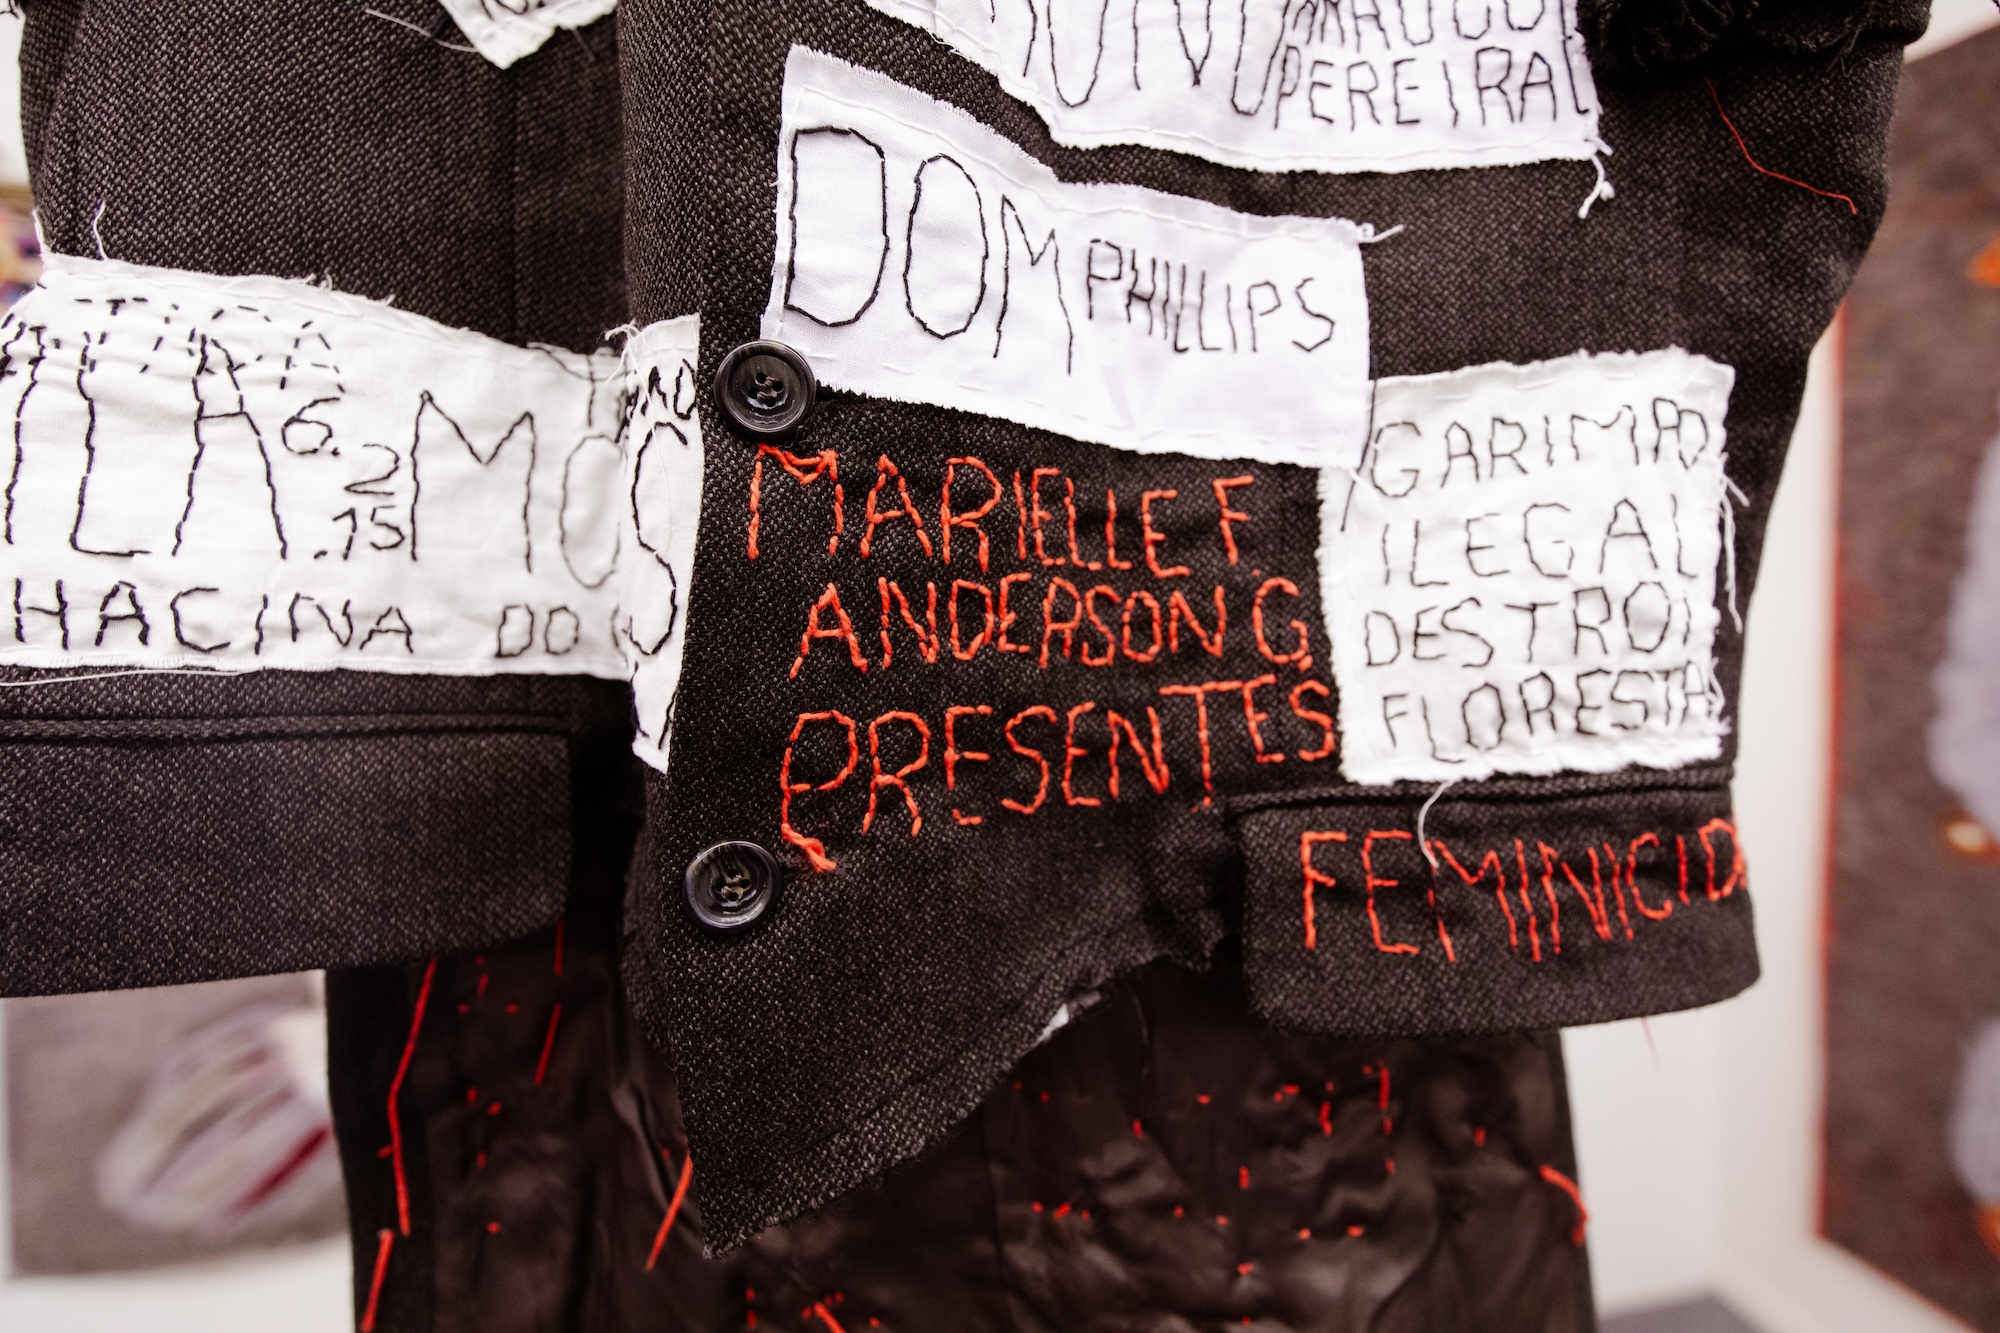 PEREIRA
DOM PHILLIPS
6.
2
.15
HACINA DO
MARIELLE F.
ANDERSON G.
PRESENTES
GARIMPO
ILEGAL
DESTROI
FLORESTA
FEMINICID